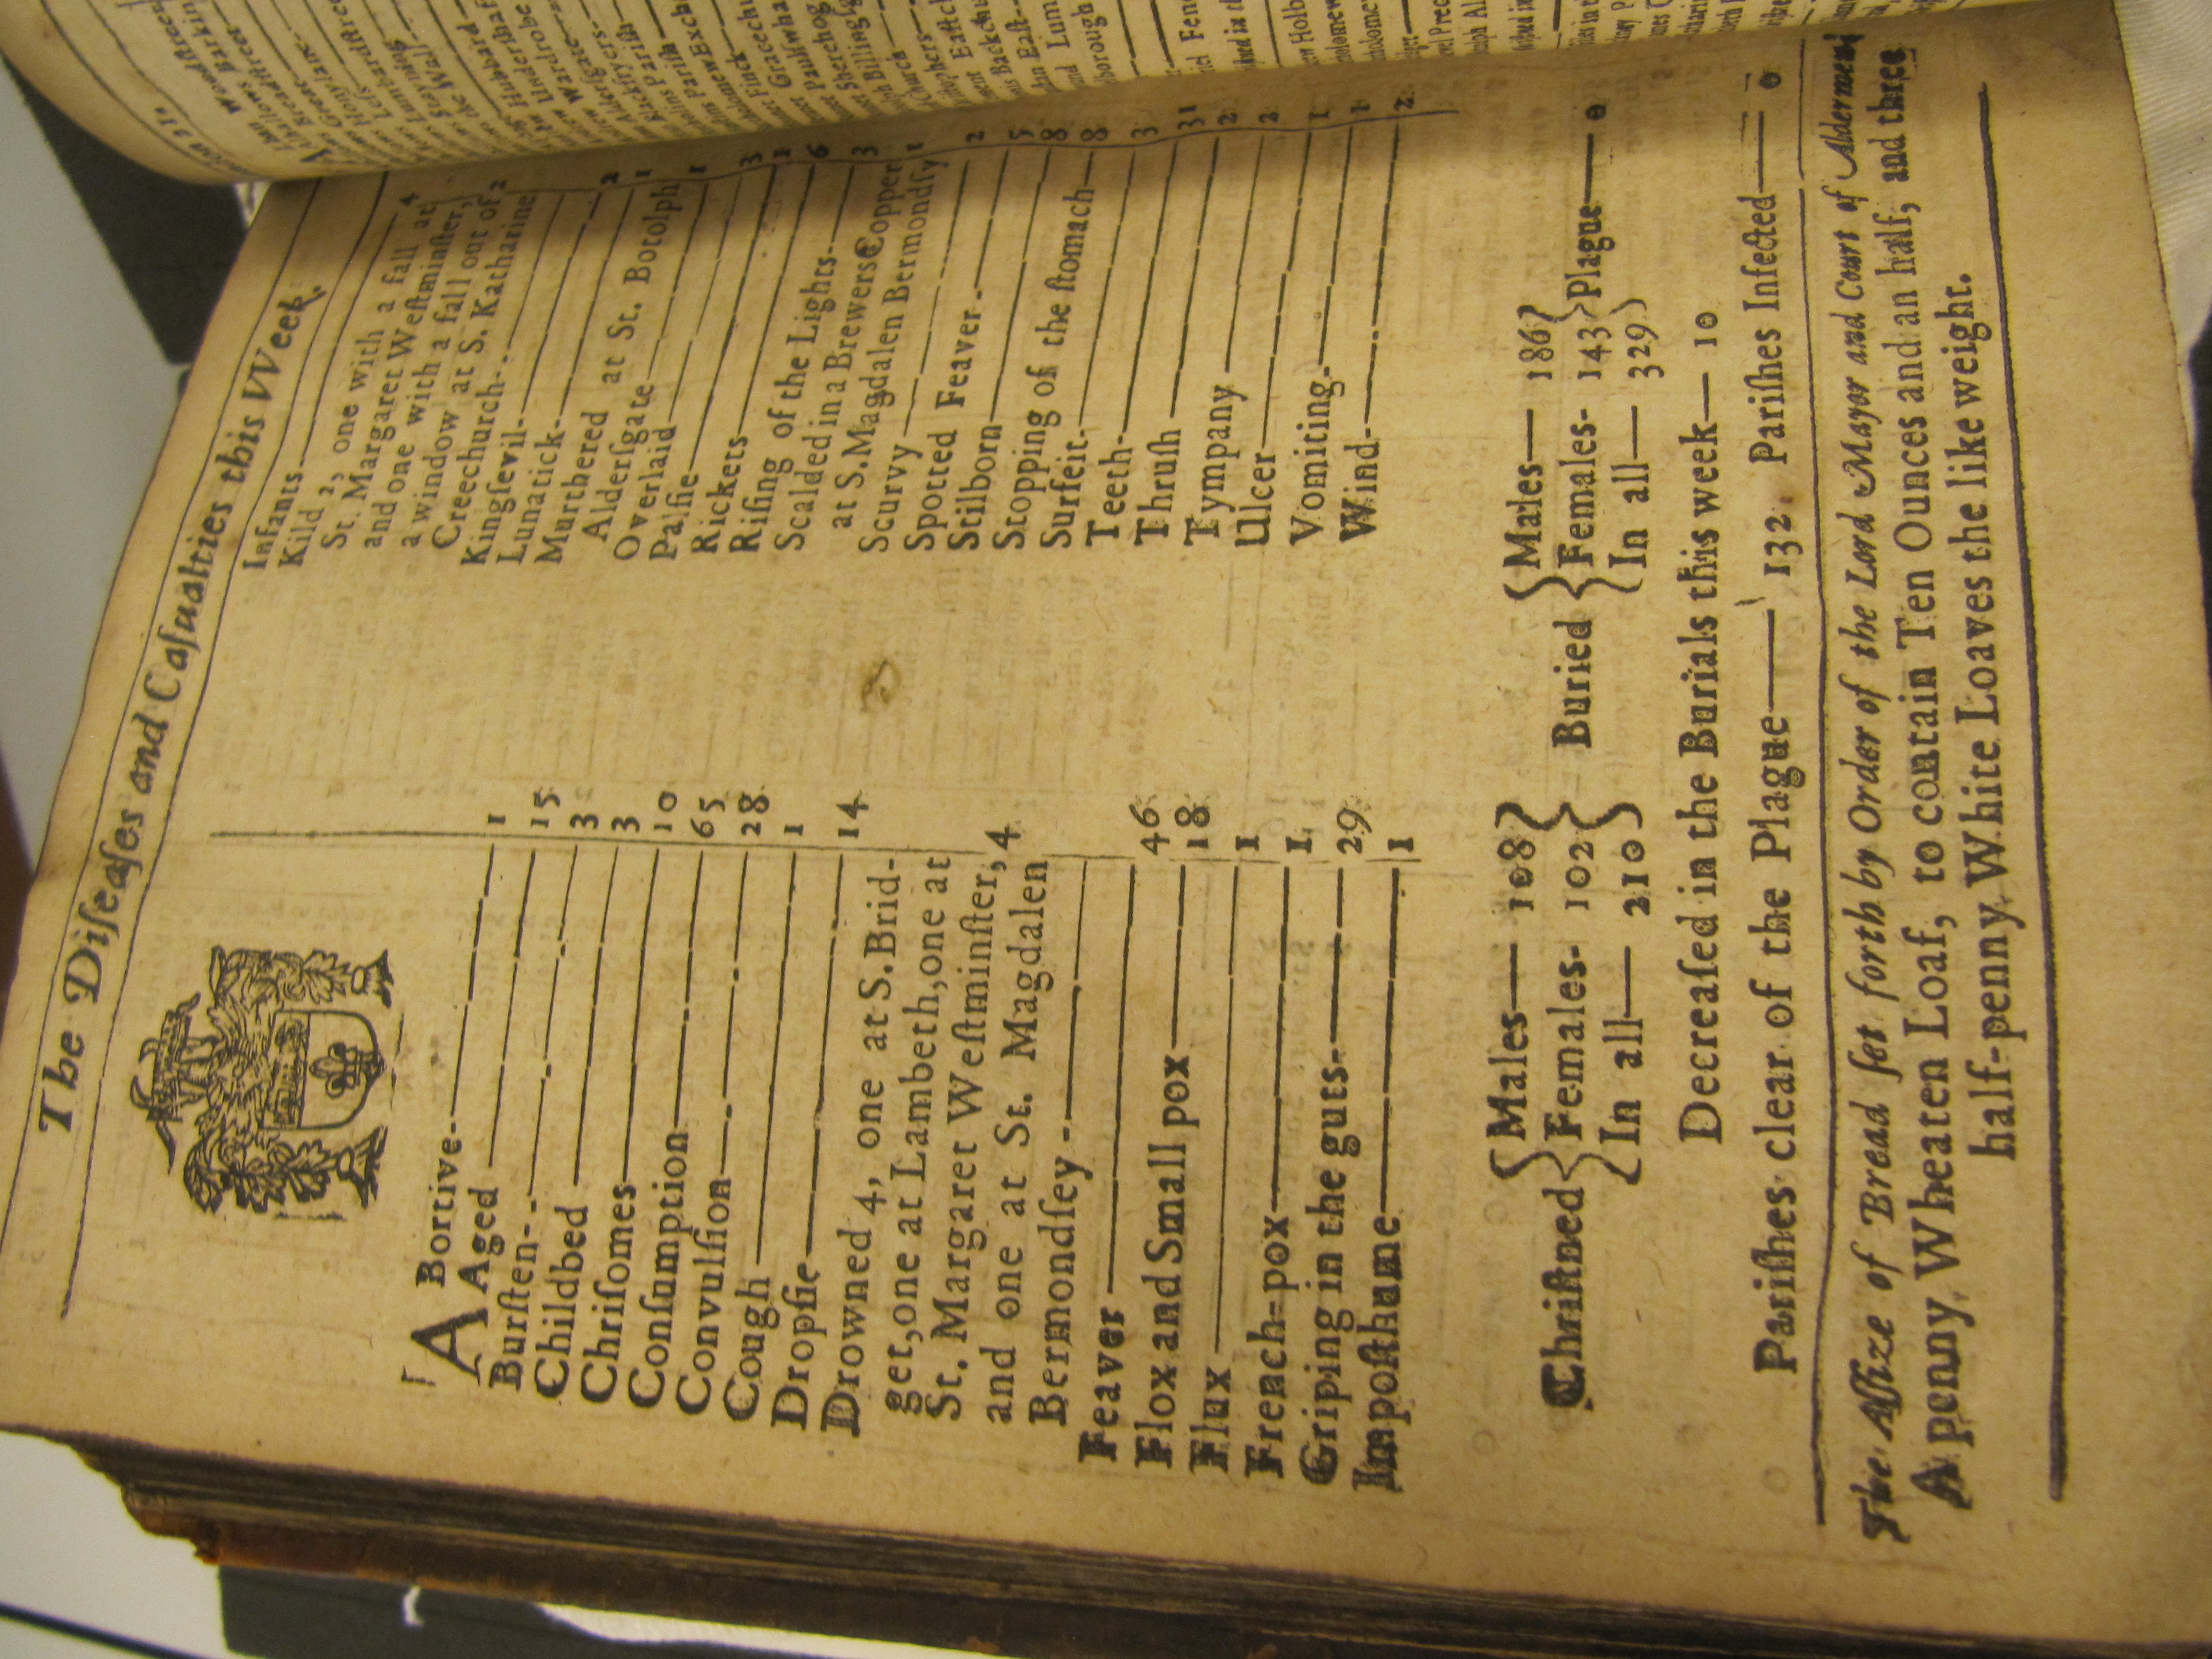 The Diſeaſes and Caſualties this Week.
ABortive— 1
Aged— 15
Burſten— 3
Childbed— 3
Chriſomes— 10
Conſumption— 65
Convulſion— 28
Cough— 1
Dropſie— 14
Drowned 4, one at S. Brid-
get, one at Lambeth, one at
St. Margaret Weſtminſter, 4
and one at St. Magdalen
Bermondſey
Feaver— 46
Flox and Small pox— 18
Flux— 1
French-pox— 1
Griping in the guts— 29
Impoſthume— 1
Infants— 4
Kild 2, one with a fall at
St. Margaret Weſtminſter,
and one with a fall out of 2
a window at S. Katharine
Creechurch
Kingſevil— 2
Lunatick— 1
Murthered at St. Botolph 1
Alderſgate
Overlaid— 3
Palſie— 1
Rickets— 6
Riſing of the Lights— 3
Scalded in a Brewers Copper 1
at S. Magdalen Bermondſy
Scurvy— 2
Spotted Feaver— 5
Stilborn— 8
Stopping of the ſtomach— 8
Surfeit— 3
Teeth— 31
Thruſh— 2
Tympany— 2
Ulcer— 1
Vomiting— 1
Wind— 2
Chriſtned { Males— 108 } Buried { Males— 186 }
{ Females- 102 } { Females- 143 } Plague— 0
{ In all— 210 } { In all— 329 }
Decreaſed in the Burials this week— 10
Pariſhes clear of the Plague— 132. Pariſhes Infected— 0
The Aſſize of Bread ſet forth by Order of the Lord Mayor and Court of Aldermen
A penny Wheaten Loaf, to contain Ten Ounces and an half, and three
half-penny White Loaves the like weight.